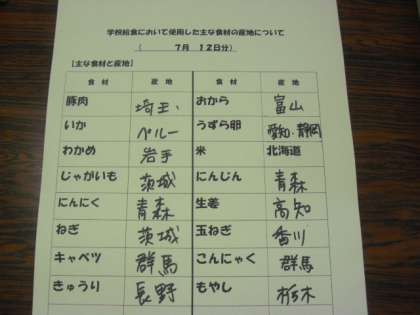 学校給食において使用した主な食材の産地について
( 7月 12日分)
[主な食材と産地]
食材 産地 食材 産地
豚肉 埼玉、 おから 富山
いか ペルー うずら卵 愛知・静岡
わかめ 岩手 米 北海道
じゃがいも 茨城 にんじん 青森
にんにく 青森 生姜 高知
ねぎ 茨城 玉ねぎ 香川
キャベツ 群馬 こんにゃく 群馬
きゅうり 長野 もやし 栃木